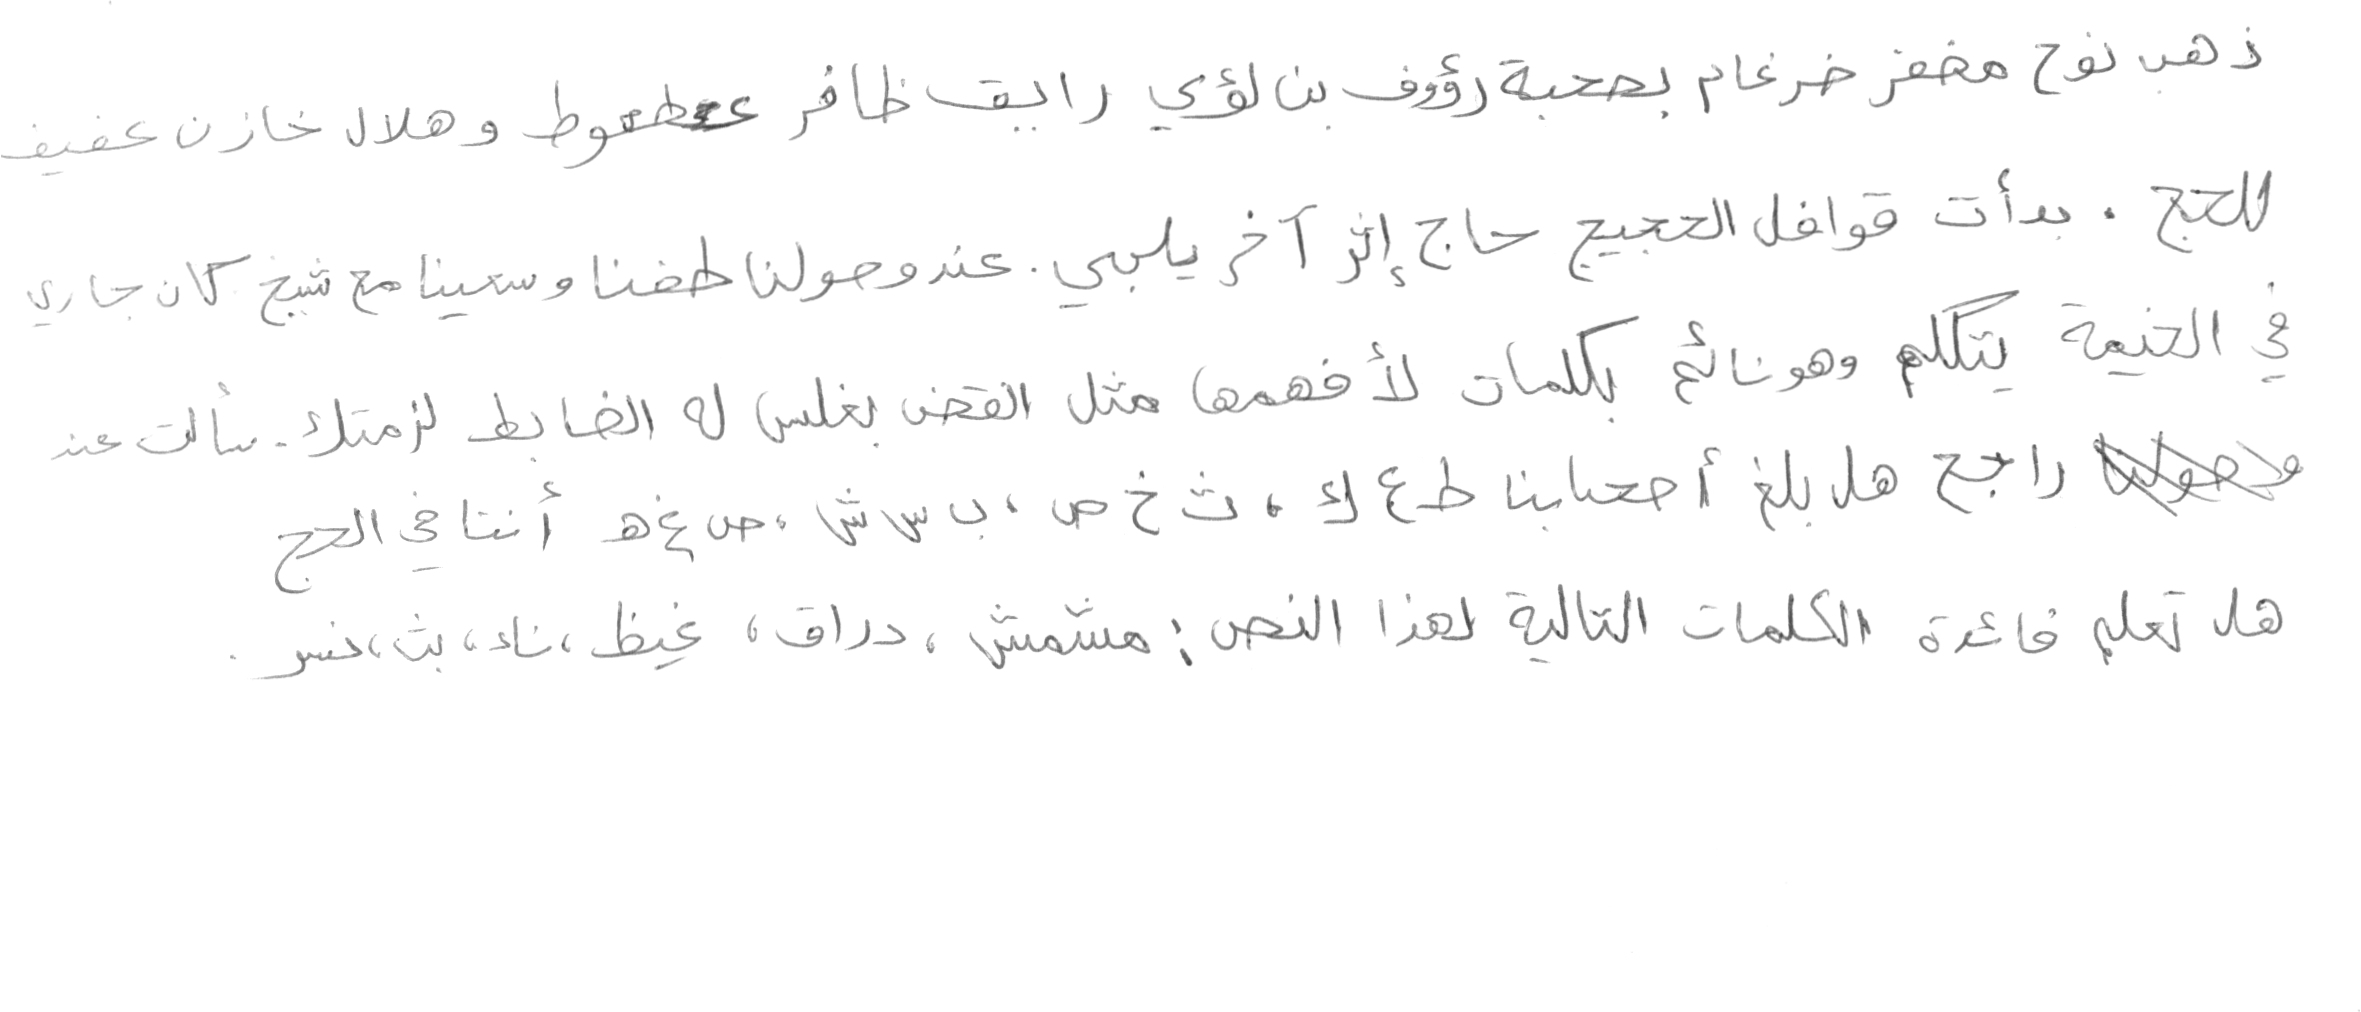 ذهب نوح مظفر ضرغام بصحبة رؤوف بن لؤي رايق ظافر عطعوط وهلال خازن عفيف
للحج . بدأت قوافل الحجيج حاج إثر آخر يلبي . عند وصولنا طفنا وسعينا مع شيخ كان جاري
في الخيمة يتكلم وهو نائم بكلمات لا أفهمها مثل القض بغلس له الضابط لزمتك . سألت عند
راجح هل بلغ أصحابنا ط ع ك ، ث خ ص ، ب س ش ، ص غ هـ أننا في الحج
هل تعلم فائدة الكلمات التالية لهذا النص : مشمش ، دراق ، غيظ ، ناء ، بث ، نسر .